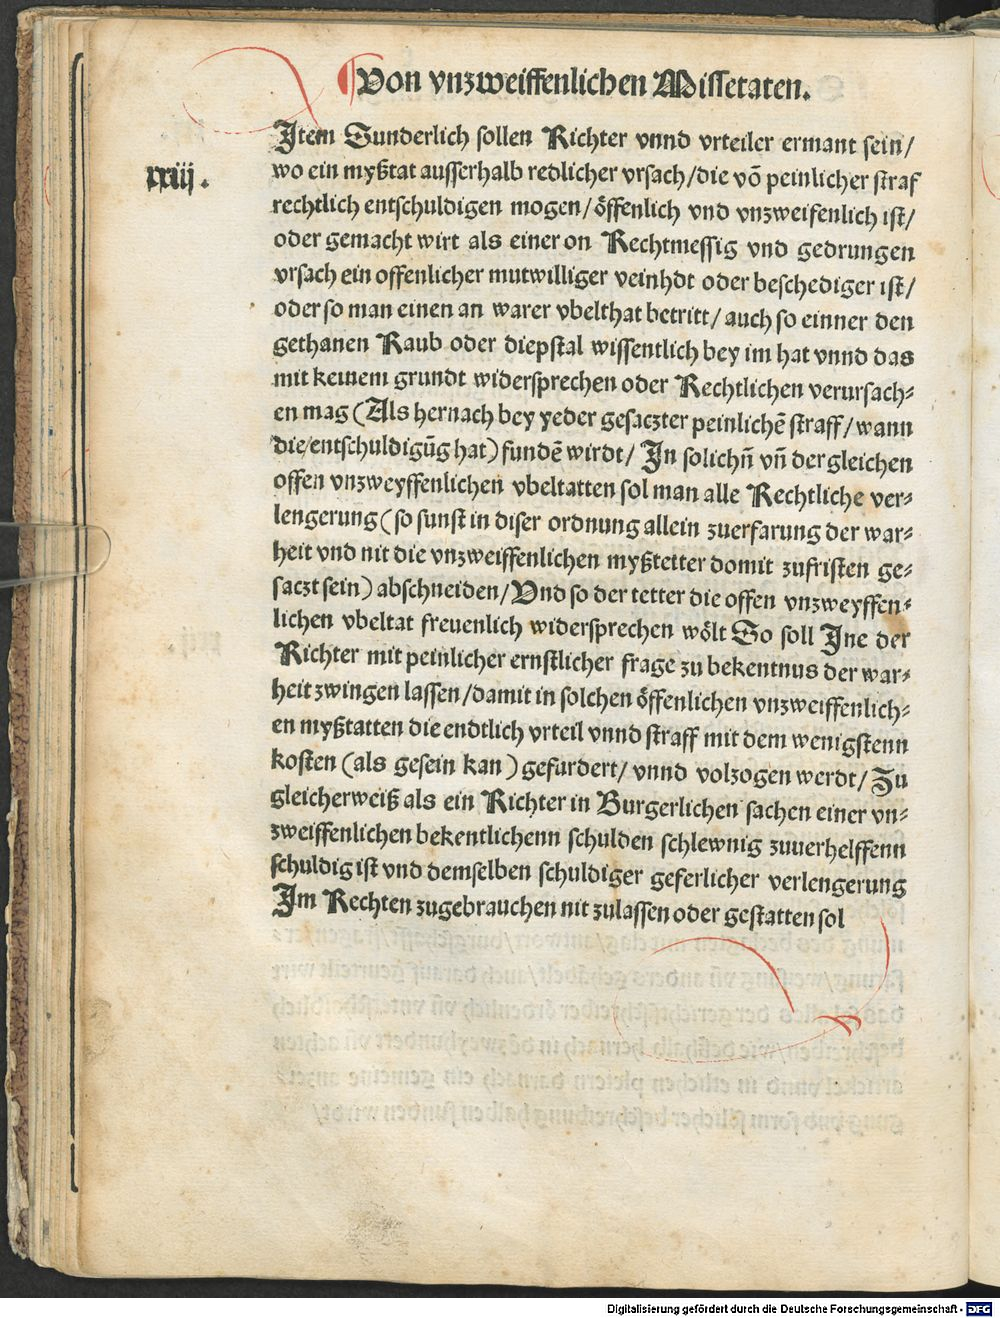 Von vnzweiffenlichen Missetaten.
xxiij.
Item Sunderlich sollen Richter vnnd vrteiler ermant sein/
wo ein myßtat ausserhalb redlicher vrsach/die võ peinlicher straf
rechtlich entschuldigen mogen/öffenlich vnd vnzweifenlich ist/
oder gemacht wirt als einer on Rechtmessig vnd gedrungen
vrsach ein offenlicher mutwilliger veinhdt oder beschediger ist/
oder so man einen an warer vbelthat betritt/auch so einner den
gethanen Raub oder diepstal wissentlich bey im hat vnnd das
mit keinem grundt widersprechen oder Rechtlichen verursach⸗
en mag (Als hernach bey yeder gesaczter peinlichẽ straff/wann
die/entschuldigũg hat) fundẽ wirdt/ In solichñ vñ dergleichen
offen vnzweyffenlichen vbeltatten sol man alle Rechtliche ver⸗
lengerung (so sunst in diser ordnung allein zuerfarung der war⸗
heit vnd nit die vnzweiffenlichen myßtetter domit zufristen ge⸗
saczt sein) abschneiden/Vnd so der tetter die offen vnzweyffen⸗
lichen vbeltat freuenlich widersprechen wölt So soll Jne der
Richter mit peinlicher ernstlicher frage zu bekentnus der war⸗
heit zwingen lassen/damit in solchen öffenlichen vnzweiffenlich⸗
en myßtatten die endtlich vrteil vnnd straff mit dem wenigstenn
kosten (als gesein kan) gefurdert/ vnnd volzogen werdt/Zu
gleicherweiß als ein Richter in Burgerlichen sachen einer vn⸗
zweiffenlichen bekentlichenn schulden schlewnig zuuerhelffenn
schuldig ist vnd demselben schuldiger geferlicher verlengerung
Im Rechten zugebrauchen nit zulassen oder gestatten sol
Digitalisierung gefördert durch die Deutsche Forschungsgemeinschaft - DFG